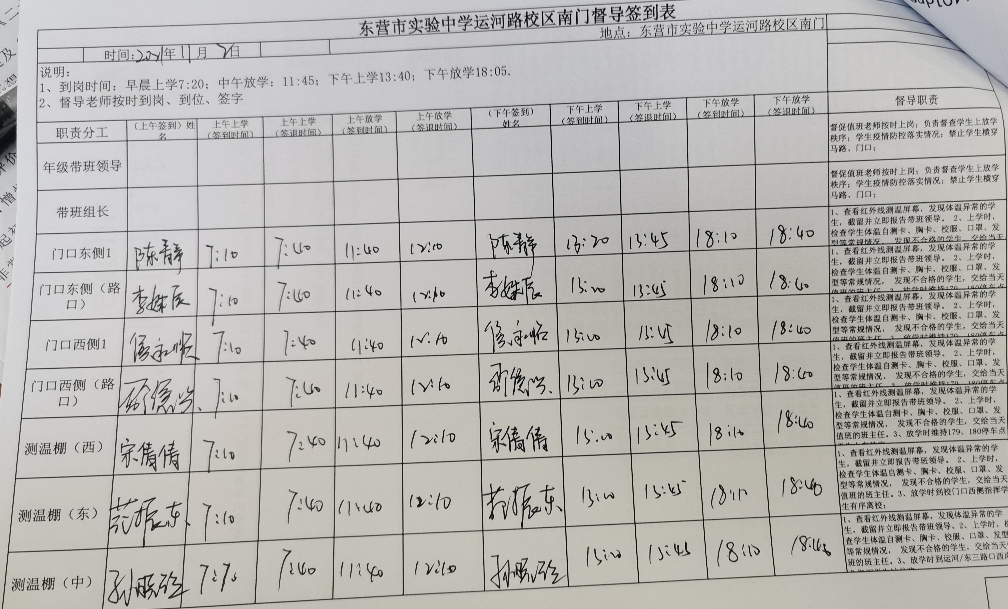 东营市实验中学运河路校区南门督导签到表
时间:2021年11月2日
地点:东营市实验中学运河路校区南门
说明:
1、到岗时间:早晨上学7:20;中午放学:11:45;下午上学13:40;下午放学18:05.
2、督导老师按时到岗、到位、签字
职责分工 (上午签到)姓名 上午上学(签到时间) 上午上学(签退时间) 上午放学(签到时间) 上午放学(签退时间) (下午签到)姓名 下午上学(签到时间) 下午上学(签退时间) 下午放学(签到时间) 下午放学(签退时间) 督导职责
年级带班领导 督促值班老师按时上岗;负责督查学生上放学
秩序;学生疫情防控落实情况;禁止学生横穿
马路、门口;
带班组长 督促值班老师按时上岗;负责督查学生上放学
秩序;学生疫情防控落实情况;禁止学生横穿
马路、门口;
门口东侧1 陈静 7:10 7:40 11:40 12:10 陈静 13:20 13:45 18:10 18:40
1、查看红外线测温屏幕,发现体温异常的学
生,截留并立即报告带班领导。2、上学时,
检查学生体温自测卡、胸卡、校服、口罩、发
型等常规情况,发现不合格的学生,交给当天
门口东侧(路口) 7:10 7:40 11:40 13:45 18:10 18:40
1、查看红外线测温屏幕,发现体温异常的学
生,截留并立即报告带班领导。2、上学时,
检查学生体温自测卡、胸卡、校服、口罩、发
型等常规情况,发现不合格的学生,交给当天
门口西侧1 7:10 7:40 11:40 12:10 13:45 18:10 18:40
1、查看红外线测温屏幕,发现体温异常的学
生,截留并立即报告带班领导。2、上学时,
检查学生体温自测卡、胸卡、校服、口罩、发
型等常规情况,发现不合格的学生,交给当天
门口西侧(路口) 7:10 7:40 11:40 12:10 13:45 18:10 18:40
1、查看红外线测温屏幕,发现体温异常的学
生,截留并立即报告带班领导。2、上学时,
检查学生体温自测卡、胸卡、校服、口罩、发
型等常规情况,发现不合格的学生,交给当天
测温棚(西) 宋倩倩 7:10 7:40 11:40 12:10 宋倩倩 13:45 18:10 18:40
1、查看红外线测温屏幕,发现体温异常的学
生,截留并立即报告带班领导。2、上学时,
检查学生体温自测卡、胸卡、校服、口罩、发
型等常规情况,发现不合格的学生,交给当天
值班的班主任。3、放学时维持179、180停车点
测温棚(东) 范振东 7:10 7:40 11:40 12:10 范振东 13:45 18:10 18:40
1、查看红外线测温屏幕,发现体温异常的学
生,截留并立即报告带班领导。2、上学时,
检查学生体温自测卡、胸卡、校服、口罩、发
型等常规情况,发现不合格的学生,交给当天
值班的班主任。3、放学时到校门口西侧指挥学
生有序离校;
测温棚(中) 7:40 11:40 12:10 13:45 18:10 18:40
1、查看红外线测温屏幕,发现体温异常的学
生,截留并立即报告带班领导。2、上学时,
查学生体温自测卡、胸卡、校服、口罩、发
型等常规情况,发现不合格的学生,交给当天
班的班主任。3、放学时到运河/东三路口西